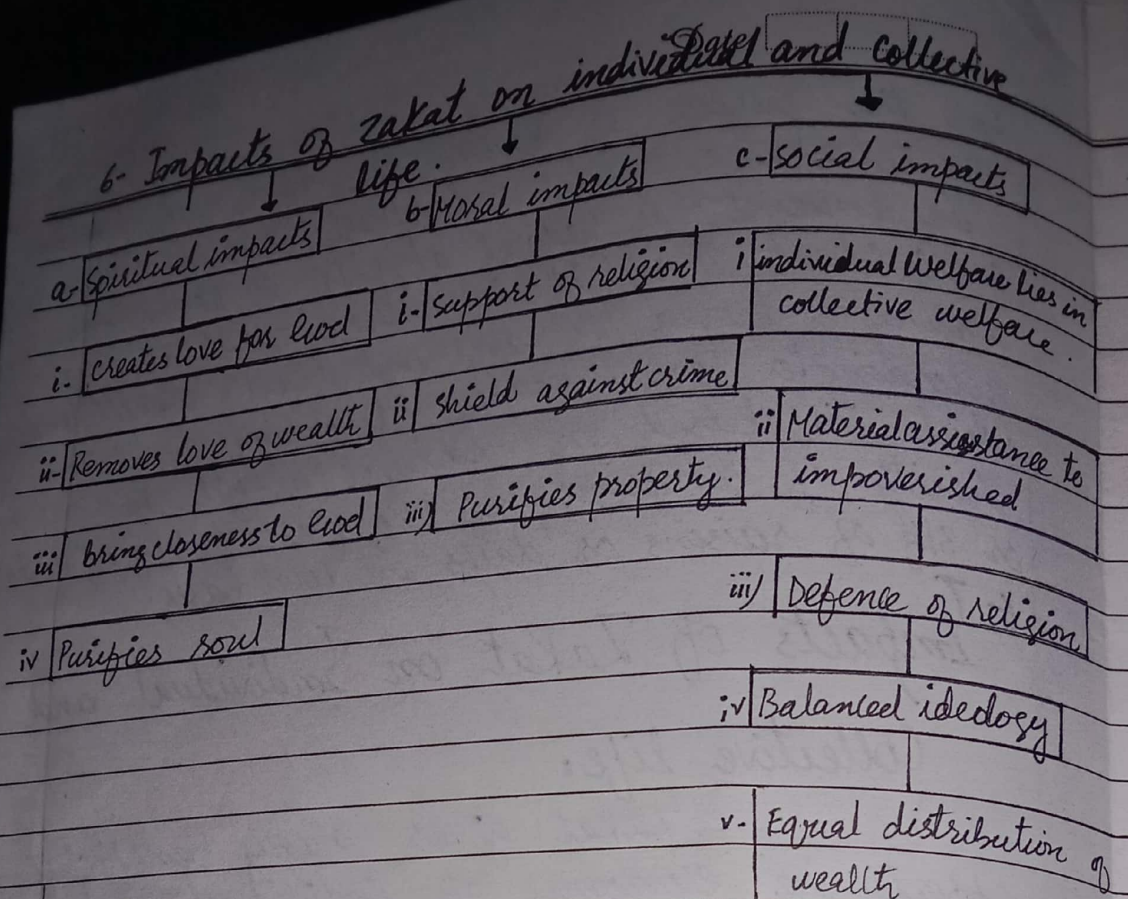 Date:
6- Impacts of zakat on individual and collective
life.
a- Spiritual impacts
i- creates love for God
ii- Removes love of wealth
iii bring closeness to God
iv Purifies soul
b- Moral impacts
i- support of religion
ii shield against crime
iii) Purifies property.
c- social impacts
i individual Welfare lies in
collective welfare.
ii Material assisstance to
impoverished
iii) Defence of religion
iv Balanced idedogy
v- Equal distribution of
weallth